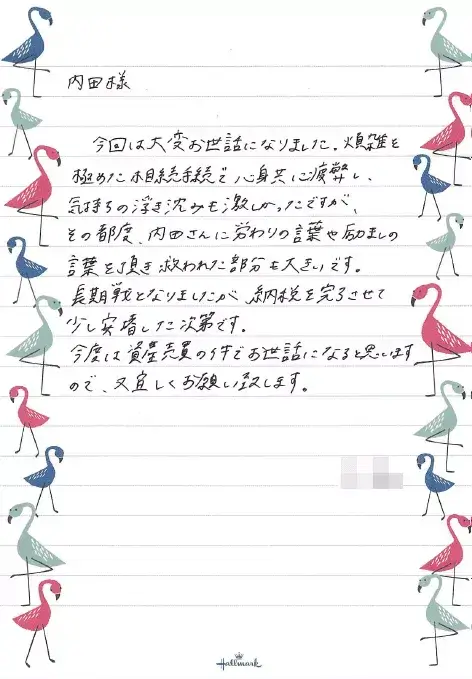 内田様
今回は大変お世話になりました。煩雑を
極めた相続手続で心身共に疲弊し、
気持ちの浮き沈みも激しかったですが、
その都度、内田さんに労わりの言葉や励ましの
言葉を頂き救われた部分も大きいです。
長期戦となりましたが、納税を完了させて
少し安堵した次第です。
今度は資産売買の件でお世話になると思います
ので、又宜しくお願い致します。
Hallmark